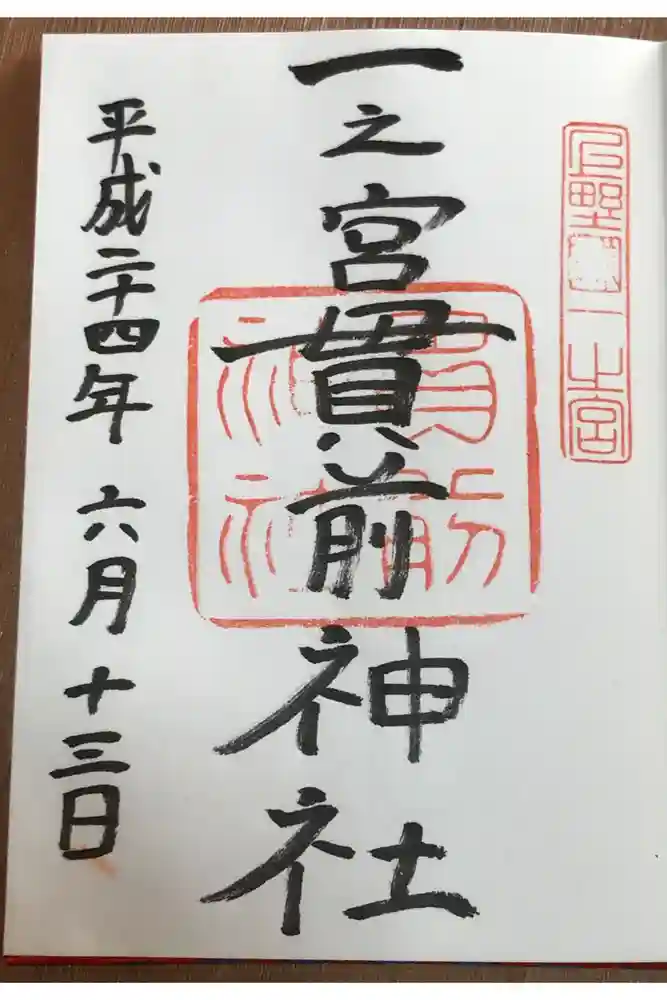 上野國一之宮
一之宮貫前神社
貫前神社
平成二十四年六月十三日